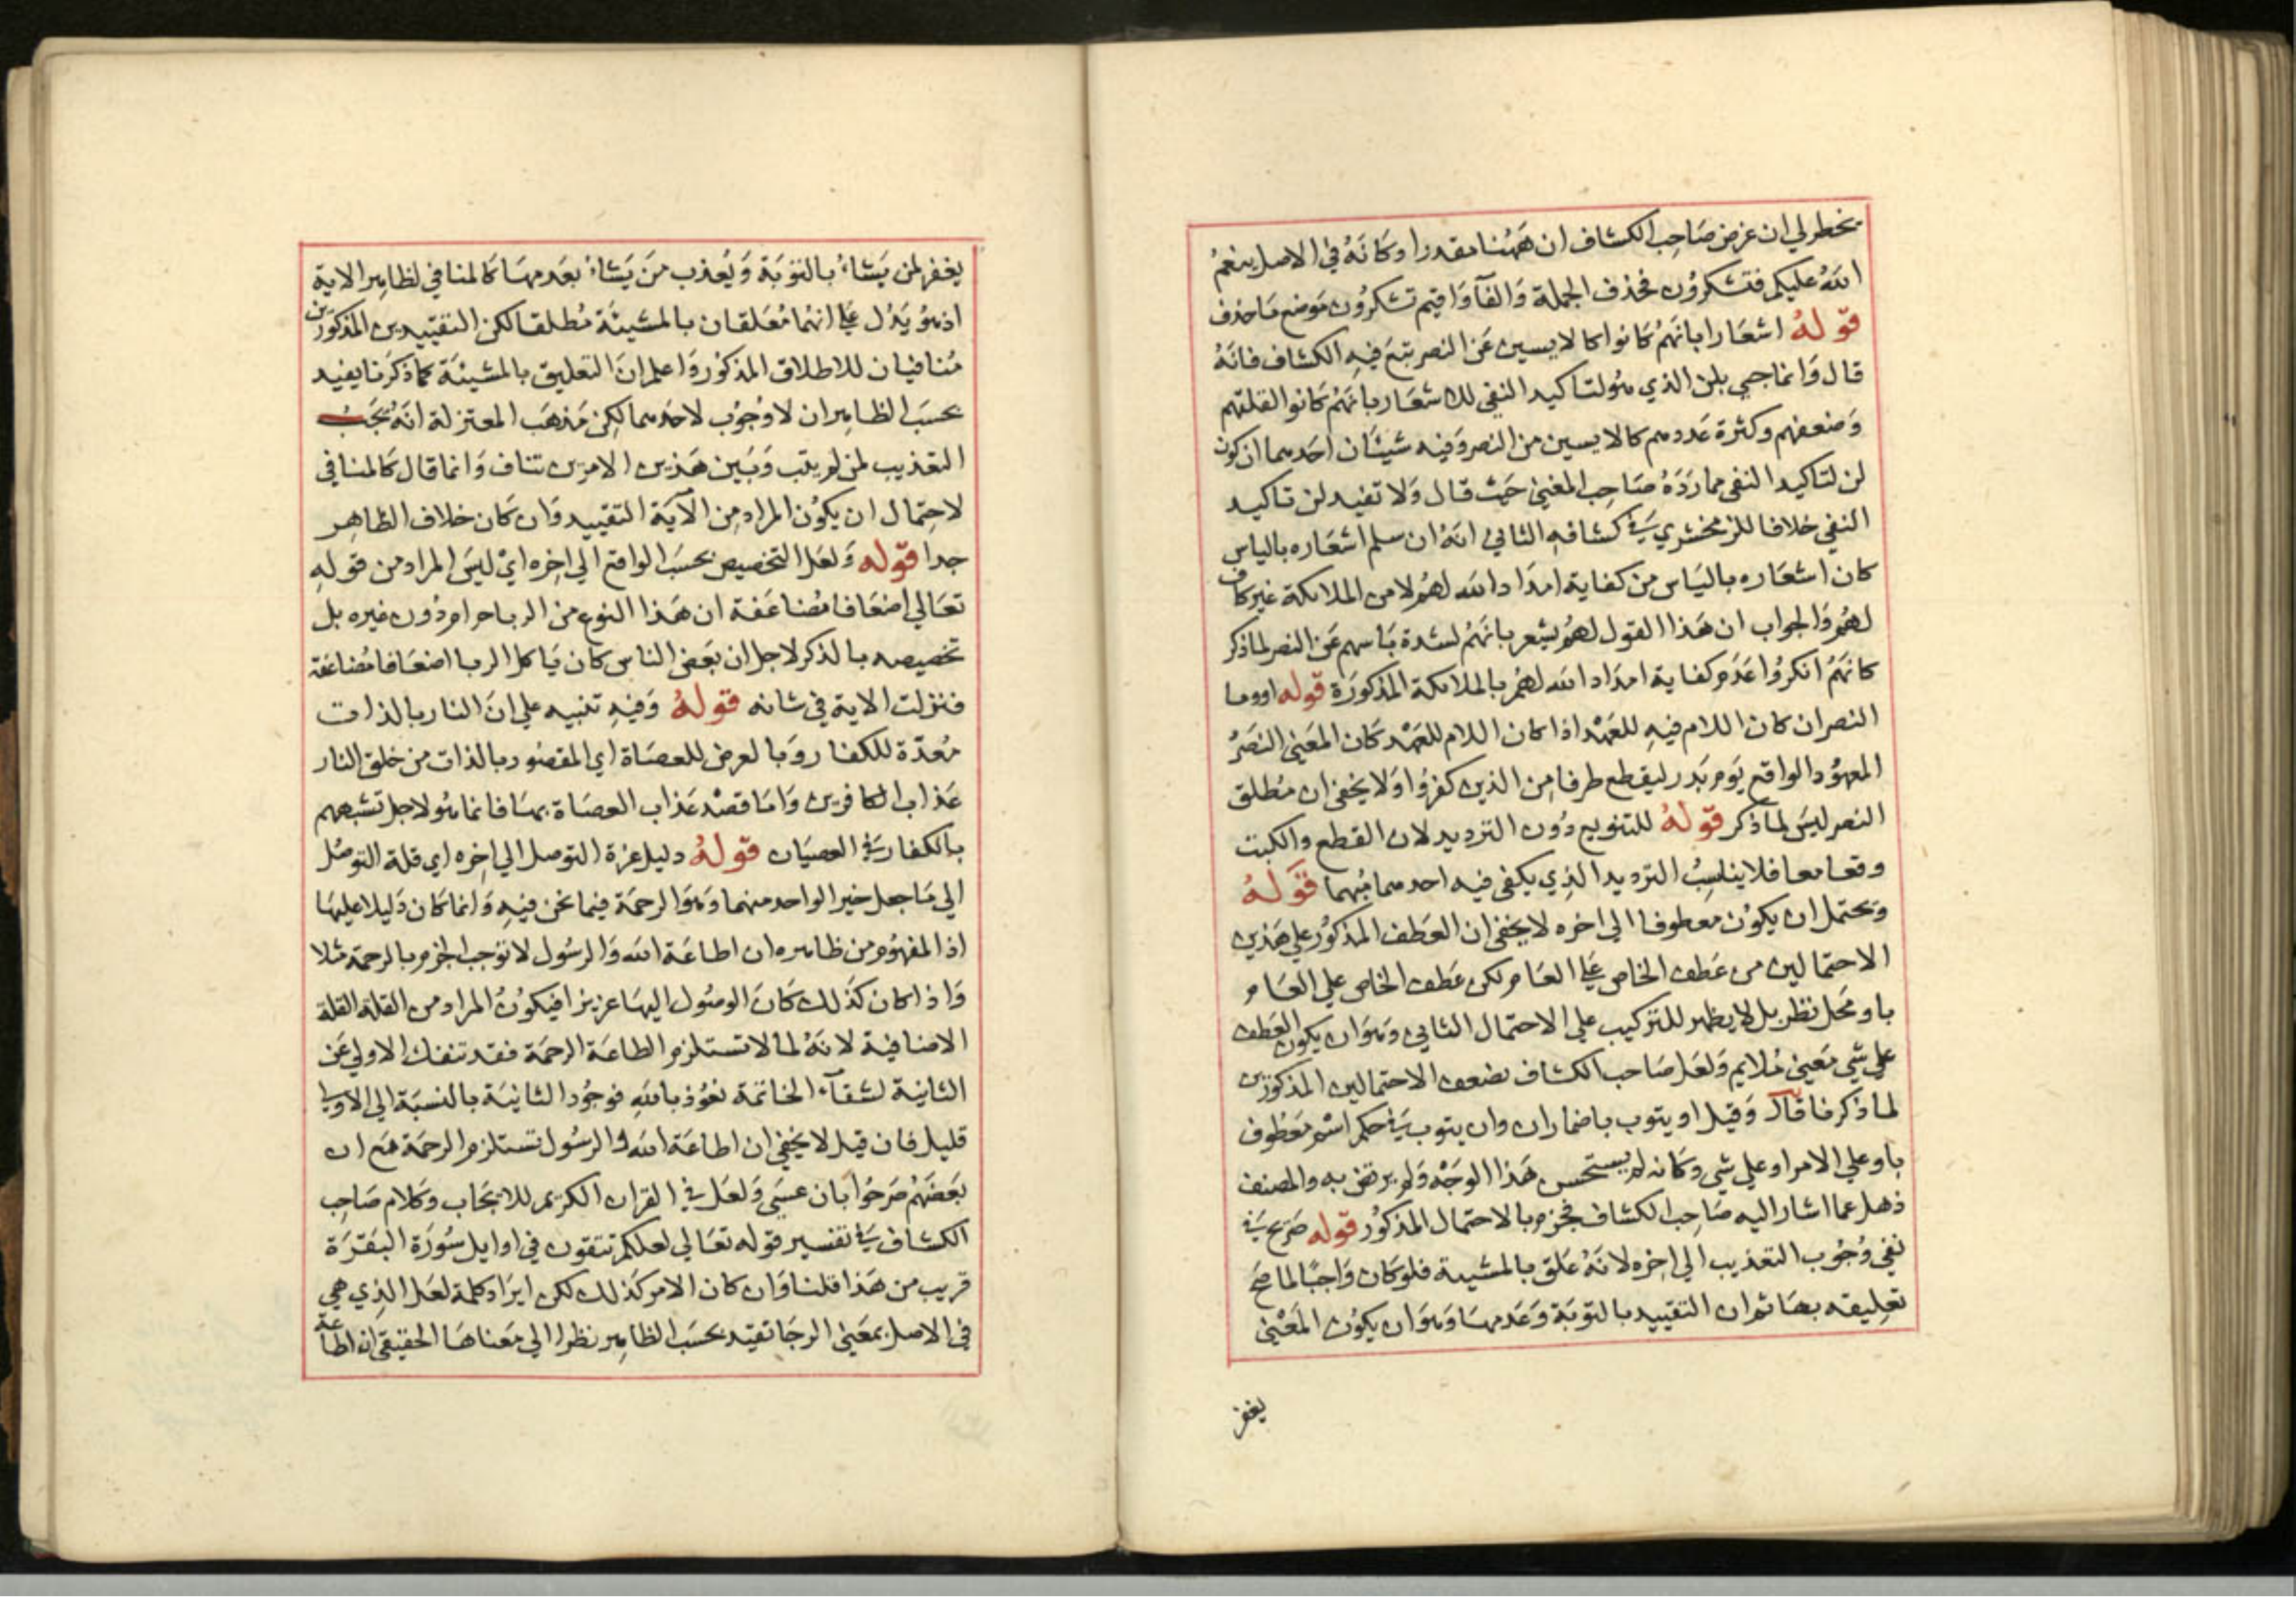 يخطر لي ان غرض صَاحِب الكشاف ان هَهُنا مقدرا وكانَهُ في الاصل ينعمُ
اللهُ عليكم فتشكرُون فحُذف الجملة وَالفآ وَاقيم تشكرُون مَوضع مَا حذف
قوَلهُ اشعَارا بانهَمُ كانوا كالايسين عَن النصر تبَع فيهِ الكشاف فانَهُ
قال وَانما جي بلن الذي هُو لتاكيد النفي للاشعَار بانهَمُ كانوا لقلتهم
وَضعفهم وكثرة عَددهم كالايسين من النصر وَفيه شيئان احَدهما ان كون
لن لتاكيد النفي مما رَدَهُ صَاحِب المغني حَيث قال وَلا تفيد لن تاكيد
النفي خلافا للزمخشري يَفي كشافهِ الثاني انهُ ان سلم اشعَاره بالياس
كان اشعَاره بالياس من كفاية امدَاد الله لهُم لا من الملائكة غيركاف
لهُم وَالجواب ان هَذا القول لهُم يشعر بانهَمُ لشدة يَاسهم عَن النصر لما ذكر
كانهَمُ انكرُوا عَدَم كفاية امدَاد الله لهُم بالملائكة المذكورَة قوله او وما
النصر ان كان اللام فيهِ للعَهْد اذا كان اللام للعَهْد كان المعَني النصَرُ
المعهوُد الواقع يَوم بَدر ليقطع طرفا مِن الذين كفرُوا وَلا يخفي ان مُطلق
النصر ليسَ لما ذكر قوَلهُ للتنويع دُون الترديد لان القطع والكبت
وقعا معا فلا يناسِبُ الترديد الذِي يكفي فيه احدهما مُبهما قوَلهُ
وَيحتمل ان يكوُن معطوفا الي اخره لا يخفي ان العَطف المذكوُر علي هَذين
الاحتمالين من عَطف الخاص عَلي العَام لكن عَطف الخاص علي العَام
باو محَل نظر بل لا يظهر للتركيب علي الاحتمال الثاني وَهوَ ان يكون العَطف
علي شي مَعيني مُلايم وَلعَل صَاحب الكشاف لضعف الاحتمالين المذكورين
لما ذَكر فا قال وَقيل او يتوب باضمار ان وان يتوب يَفي حكم اسْم مَعطوف
باو علي الامر او علي شي وكانه لم يستحسن هَذا الوَجْه وَلم يرتض به والمصنف
ذهل عما اشار اليه صَاحِب الكشاف فجَزم بالاحتمال المذكوُر قوله صَريح يَفي
نفي وُجُوب التعذيب الي اخره لانَهُ عَلق بالمشيية فلوكان وَاجبًا لما صَح
تعليقه بهَا ثم ان التقييد بالتوبَة وَعَدمهَا وَهوَ ان يكوُن المَعْني
يغفر
يغفر لمن يَشاءُ بالتوَبَة وَيُعذب مَن يَشاءُ بعَدمهَا كالمنافي لظاهر الاية
اذ هُو يَدُل عَلي انهُما مُعَلقان بالمشيئة مُطلقا لكن التقييدين المذكورَين
مُنافيان للاطلاق المذكوُر وَاعلم ان التعليق بالمشيئة كما ذكرنا يفيد
بحسَب الظاهر ان لا وُجُوب لاحدهما لكِن مَذهَب المعتزلة انهُ يجَبُ
التعذيب لمن لم يتب وَبَين هَذين الامرين تناف وَانما قال كالمنافي
لاحِتمال ان يكوُن المراد مِن الآية التقييد وَان كان خلاف الظاهر
جدا قوله وَلعَل التخصيص بحسَب الواقع الي اخِره ايْ ليسَ المراد من قولهِ
تعَالي اضعَافا مُضاعَفة ان هَذا النوع من الربا حرام دُون غيره بل
تخصيصه بالذكر لاجل ان بعَض الناس كان يَاكل الربا اضعَافا مُضاعَفة
فنزلت الاية في شانه قوَلهُ وَفيهِ تنبيه علي انَ النار بالذات
مُعدّة للكفار وَبالعرض للعصَاة اي المقصُود بالذات من خلق النار
عَذاب الكافرين وَامَا قصْد عَذاب العصَاة بهَا فانما هُو لاجل تشبههم
بالكفار يَفي العصيَان قوَلهُ دليل عزة التوصل الي اخِره اي قلة التوصُل
الي مَا جعل خبر الواحد منهما وَهوَ الرحمَة فيما نحن فيهِ وَانما كان دَليلا عليهَا
اذ المفهوُم من ظاهره ان اطاعَة الله وَالرسُول لا توُجب الجزم بالرحمة مثلا
وَاذا كان كذَلك كانَ الوصُول اليهَا عزيزا فيكوُنُ المراد من القلة القلة
الاضافية لانَهُ لما لا تستلزم الطاعَة الرحمَة فقد تنفك الاولي عَن
الثانية لشقآء الخاتمة نعَوُذ بالله فوجُود الثانيَة بالنسبَة الي الاولي
قليل فان قيل لا يخفي ان اطاعَة الله وَالرسُول تستلزم الرحمَة مَع ان
بعَضهَمُ صَرحُوا بان عسَي وَلعَل في القران الكريم للايجَاب وكلام صَاحِب
الكشاف يَفي تفسير قوله تعَالي لعلكم تتقون في اوايل سُورَة البقَرَة
قريب من هَذا قلنا وَان كان الامر كذَلك لكن ايرَاد كلمة لعَل الذِي هي
في الاصل بمعَني الرجَا تفيد بحسَب الظاهر نظرا الي مَعناهَا الحقيقي ان اطاعة